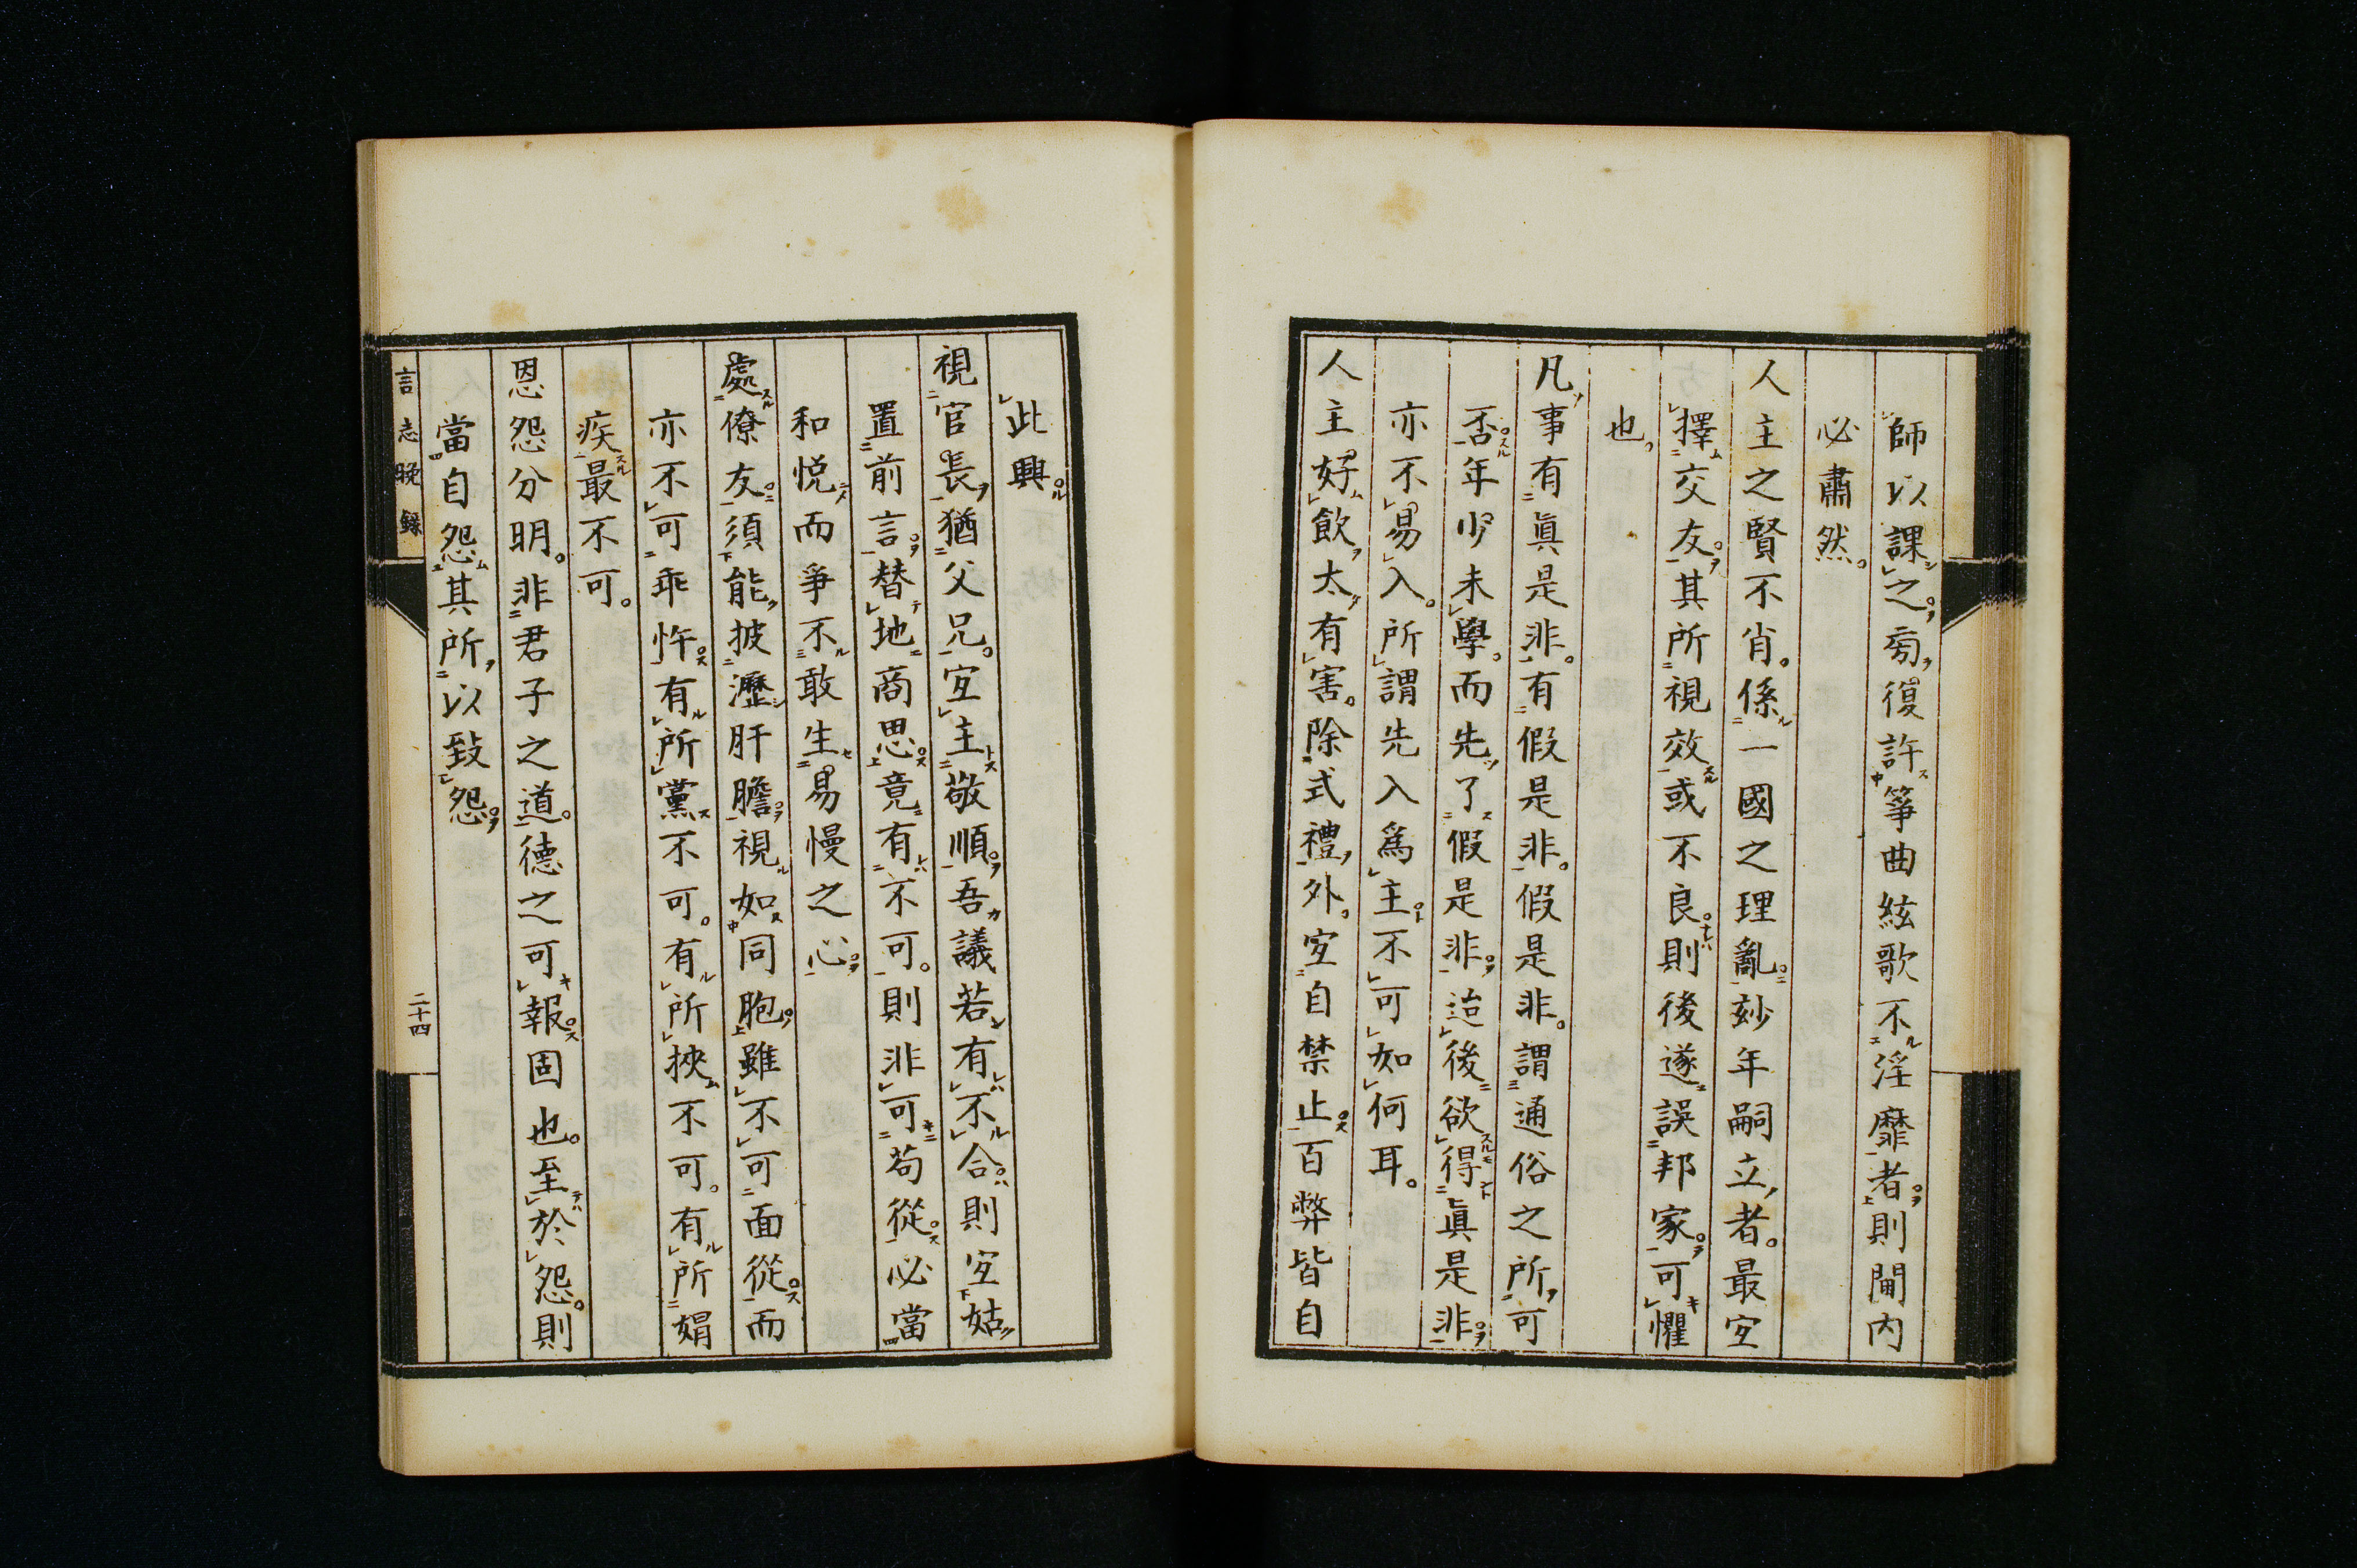 師以課之旁復許箏曲絃歌不淫靡者則閫內
必肅然。
人主之賢不肖。係一國之理亂。玅年嗣立者。最宜
擇交友。其所視效或不良。則後遂誤邦家。可懼
也。
凡事有眞是非。有假是非。假是非。謂通俗之所可
否。年少未學。而先了假是非。迨後欲得眞是非。
亦不易入。所謂先入爲主。不可如何耳。
人主好飲太有害。除式禮外。宜自禁止。百弊皆自
此興。
視官長。猶父兄。宜主敬順。吾議若有不合。則宜姑
置前言。替地商思。竟有不可。則非可苟從。必當
和悅而爭。不敢生易慢之心。
處僚友。須能披瀝肝膽。視如同胞。雖不可面從。而
亦不可乖忤。有所黨不可。有所挾不可。有所媢
疾最不可。
恩怨分明。非君子之道。德之可報固也。至於怨。則
當自怨其所以致怨。
言志晚錄
二十四